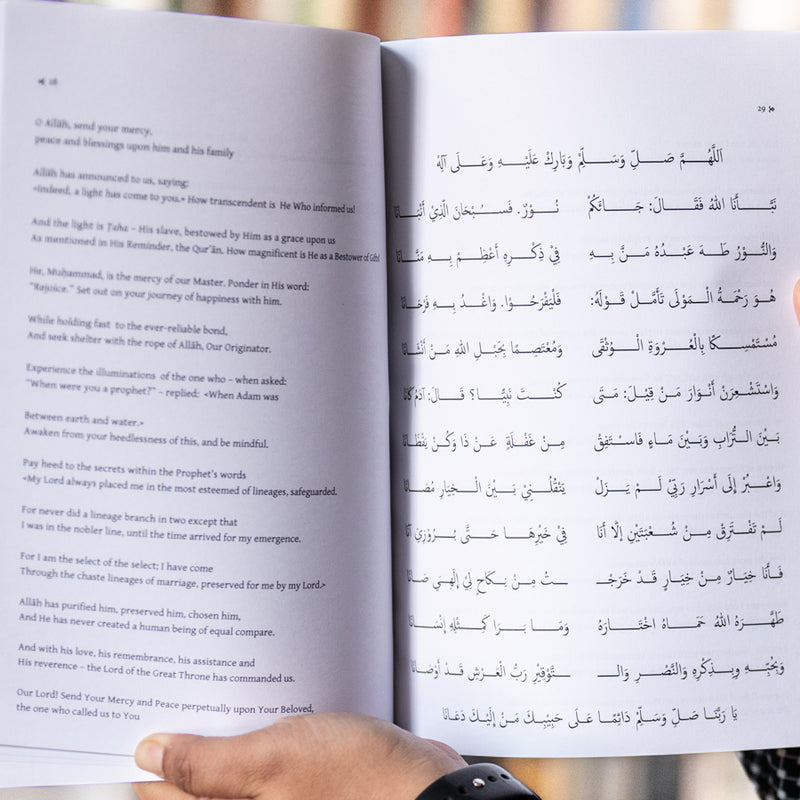 28
O Allāh, send your mercy,
peace and blessings upon him and his family
Allāh has announced to us, saying:
«Indeed, a light has come to you.» How transcendent is He Who informed us!
And the light is Ṭaha – His slave, bestowed by Him as a grace upon us
As mentioned in His Reminder, the Qur'ān. How magnificent is He as a Bestower of Gifts!
He, Muḥammad, is the mercy of our Master. Ponder in His word:
"Rejoice." Set out on your journey of happiness with him.
While holding fast to the ever-reliable bond,
And seek shelter with the rope of Allāh, Our Originator.
Experience the illuminations of the one who – when asked:
"When were you a prophet?" – replied: «When Adam was
Between earth and water.»
Awaken from your heedlessness of this, and be mindful.
Pay heed to the secrets within the Prophet's words
«My Lord always placed me in the most esteemed of lineages, safeguarded.
For never did a lineage branch in two except that
I was in the nobler line, until the time arrived for my emergence.
For I am the select of the select; I have come
Through the chaste lineages of marriage, preserved for me by my Lord.»
Allāh has purified him, preserved him, chosen him,
And He has never created a human being of equal compare.
And with his love, his remembrance, his assistance and
His reverence – the Lord of the Great Throne has commanded us.
Our Lord! Send Your Mercy and Peace perpetually upon Your Beloved,
the one who called us to You
29
اَللَّهُمَّ صَلِّ وَسَلِّمْ وَبَارِكْ عَلَيْهِ وَعَلَى آلِهْ
نَبَّأَنَا اللهُ فَقَالَ: جَائَكُمْ نُوْرٌ. فَسُبْحَانَ الَّذِيْ أَنْبَانَا
وَالنُّوْرُ طَهَ عَبْدُهُ مَنَّ بِهِ فِيْ ذِكْرِهِ أَعْظِمْ بِهِ مَنَّانَا
هُوَ رَحْمَةُ الْمَوْلَى تَأَمَّلْ قَوْلَهُ: فَلْيَفْرَحُوْا. وَاغْدُ بِهِ فَرْحَانَا
مُسْتَمْسِكًا بِالْعُرْوَةِ الْوُثْقَى وَمُعْتَصِمًا بِحَبْلِ اللهِ مَنْ أَنْشَانَا
وَاسْتَشْعِرَنْ أَنْوَارَ مَنْ قِيْلَ: مَتَى كُنْتَ نَبِيًّا؟ قَالَ: آدَمُ كَانَا
بَيْنَ التُّرَابِ وَبَيْنَ مَاءٍ فَاسْتَفِقْ مِنْ غَفْلَةٍ عَنْ ذَا وَكُنْ يَقْظَانَا
وَاعْبُرْ إِلَى أَسْرَارِ رَبِّيْ لَمْ يَزَلْ يَنْقُلُنِيْ بَيْنَ الْخِيَارِ مُصَانَا
لَمْ تَفْتَرِقْ مِنْ شُعْبَتَيْنِ إِلَّا أَنَا فِيْ خَيْرِهَا حَتَّى بُرُوْزِيَ آنَا
فَأَنَا خِيَارٌ مِنْ خِيَارٍ قَدْ خَرَجْـ ـتُ مِنْ نِكَاحٍ لِيْ إِلَهِيْ صَانَا
طَهَّرَهُ اللهُ حَمَاهُ اخْتَارَهُ وَمَا بَرَا كَمِثْلِهِ إِنْسَانَا
وَبِحُبِّهِ وَبِذِكْرِهِ وَالنَّصْرِ وَالـ ـتَّوْقِيْرِ رَبُّ الْعَرْشِ قَدْ أَوْصَانَا
يَا رَبَّنَا صَلِّ وَسَلِّمْ دَائِمًا عَلَى حَبِيْبِكَ مَنْ إِلَيْكَ دَعَانَا